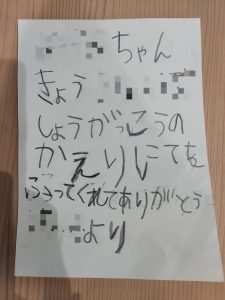 ちゃん
きょう
しょうがっこうの
かえりにてを
ふってくれてありがとう
より